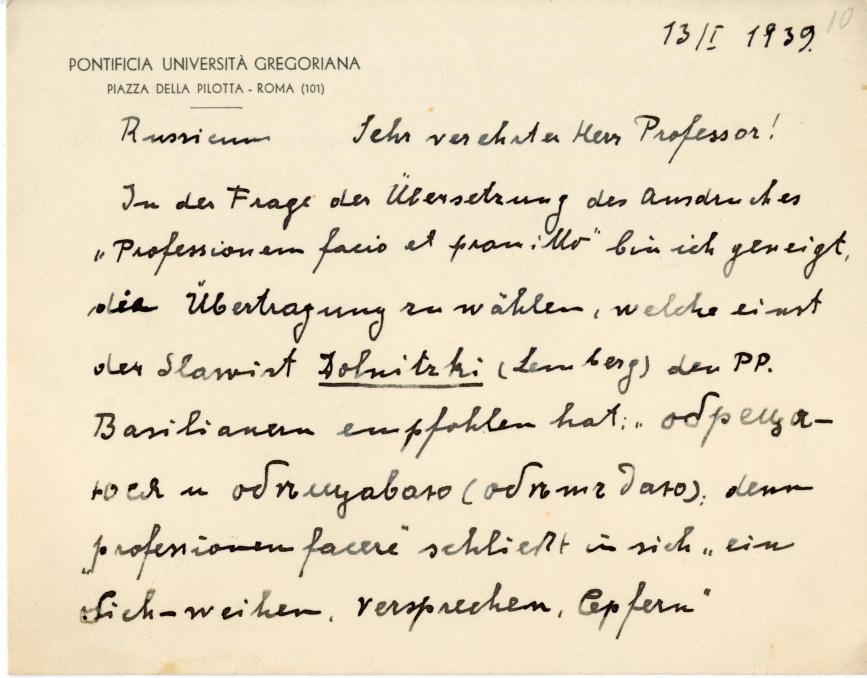 10
13/I 1939.
PONTIFICIA UNIVERSITÀ GREGORIANA
PIAZZA DELLA PILOTTA - ROMA (101)
Russicum Sehr verehrter Herr Professor!
In der Frage der Übersetzung des Ausdruckes
„Professionem facio et promitto" bin ich geneigt,
die Übertragung zu wählen, welche einst
der Slawist Dolnitzki (Lemberg) den PP.
Basilianern empfohlen hat: „обреща-
юся и обѣщаваю (обѣтъ даю); denn
„professionem facere" schließt in sich „ein
Sich-weihen, versprechen, Opfern"